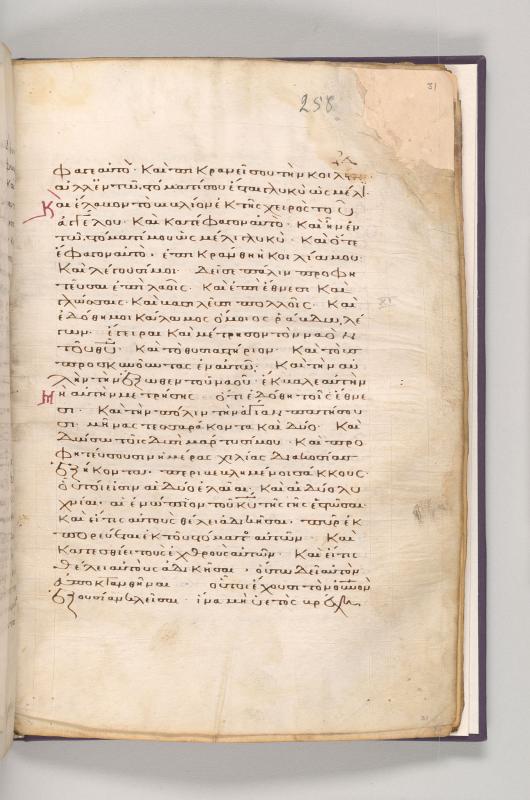 31
258
φαγε αὐτό· Καὶ πικρανεῖ σου τὴν κοιλίαν
ἀλλ' ἐν τῷ στόματί σου ἔσται γλυκὺ ὡς μέλι.
Καὶ ἔλαβον τὸ βιβλίον ἐκ τῆς χειρὸς τοῦ
ἀγγέλου. Καὶ κατέφαγον αὐτό· Καὶ ἦν ἐν
τῷ στόματί μου ὡς μέλι γλυκύ· Καὶ ὅτε
ἔφαγον αὐτό, ἐπικράνθη ἡ κοιλία μου·
Καὶ λέγουσί μοι· Δεῖ σε πάλιν προφη
τεῦσαι ἐπὶ λαοῖς· Καὶ ἐπὶ ἔθνεσι Καὶ
γλώσσαις· Καὶ βασιλεῦσι πολλοῖς· Καὶ
ἐδόθη μοι κάλαμος ὅμοιος ῥάβδῳ, λέ
γων· ἔγειραι Καὶ μέτρησον τὸν ναὸν
τοῦ θῦ· Καὶ τὸ θυσιαστήριον· Καὶ τοὺς
προσκυνοῦντας ἐν αὐτῷ· Καὶ τὴν αὐ
λὴν τὴν ἔξωθεν τοῦ ναοῦ ἔκβαλε
μὴ αὐτὴν μετρήσης· ὅτι ἐδόθη τοῖς ἔθνε
σι· Καὶ τὴν πόλιν τὴν ἁγίαν πατήσου
σι μῆνας τεσσαράκοντα καὶ δύο· Καὶ
δώσω τοῖς δυσὶ μάρτυσί μου· Καὶ προ
φητεύσουσιν ἡμέρας χιλίας διακοσίας
ἑξήκοντα· περιβεβλημένοι σάκκους·
οὗτοί εἰσιν αἱ δύο ἐλαῖαι· Καὶ αἱ δύο λυ
χνίαι· αἱ ἐνώπιον τοῦ κῦ τῆς γῆς ἑστῶσαι·
Καὶ εἴ τις αὐτοὺς θέλει ἀδικῆσαι· πῦρ ἐκ
πορεύεται ἐκ τοῦ στόματος αὐτῶν· Καὶ
κατεσθίει τοὺς ἐχθροὺς αὐτῶν· Καὶ εἴ τις
θέλει αὐτοὺς ἀδικῆσαι· οὕτω δεῖ αὐτὸν
ἀποκτανθῆναι· οὗτοι ἔχουσι τὸν οὐνον
ἐξουσίαν κλεῖσαι· ἵνα μὴ ὑετὸς βρέχῃ
31